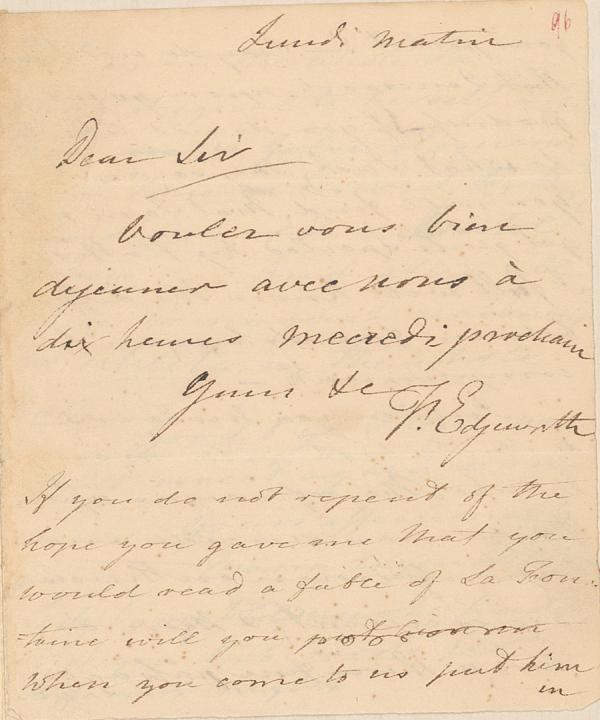 96
Lundi matin
Dear Sir
Voulez vous bien
dejeuner avec nous à
dix heures mecredi prochain
Yours &c
F. Edgeworth
If you do not repent of the
hope you gave me that you
would read a fable of La Fon-
taine will you
when you come to us put him
in